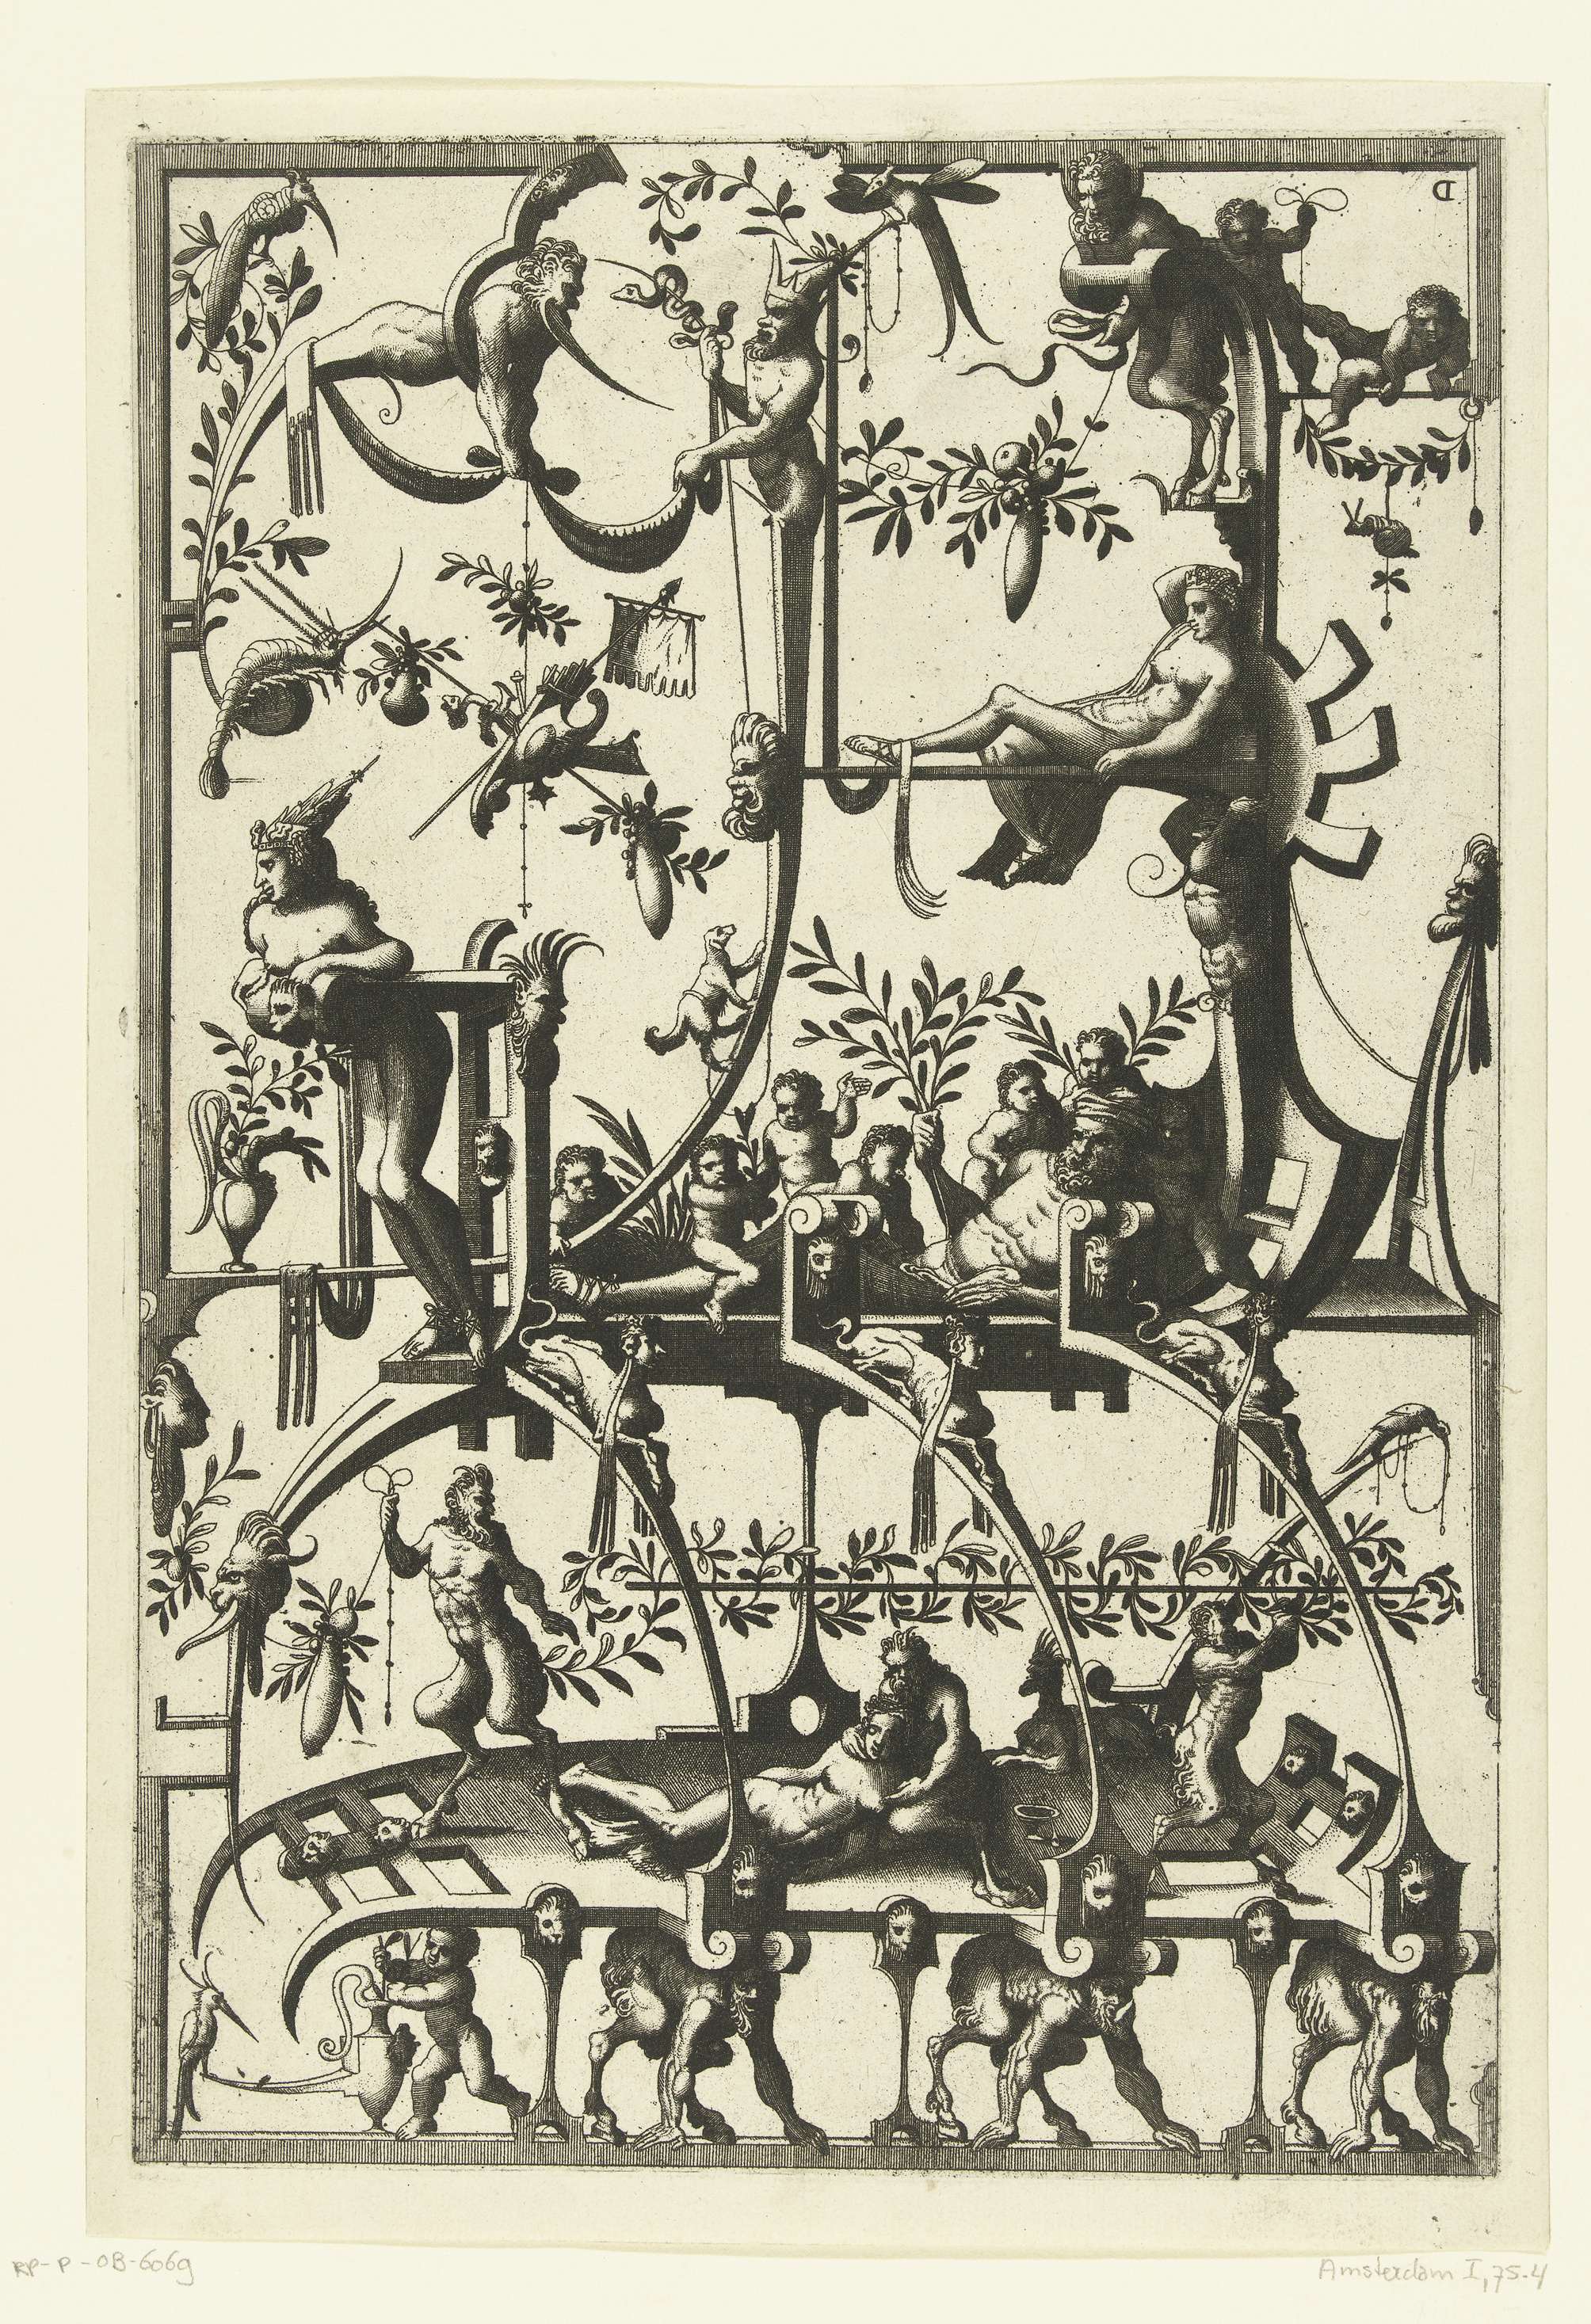 D
RP-P-OB-6069
Amsterdam I, 75.4